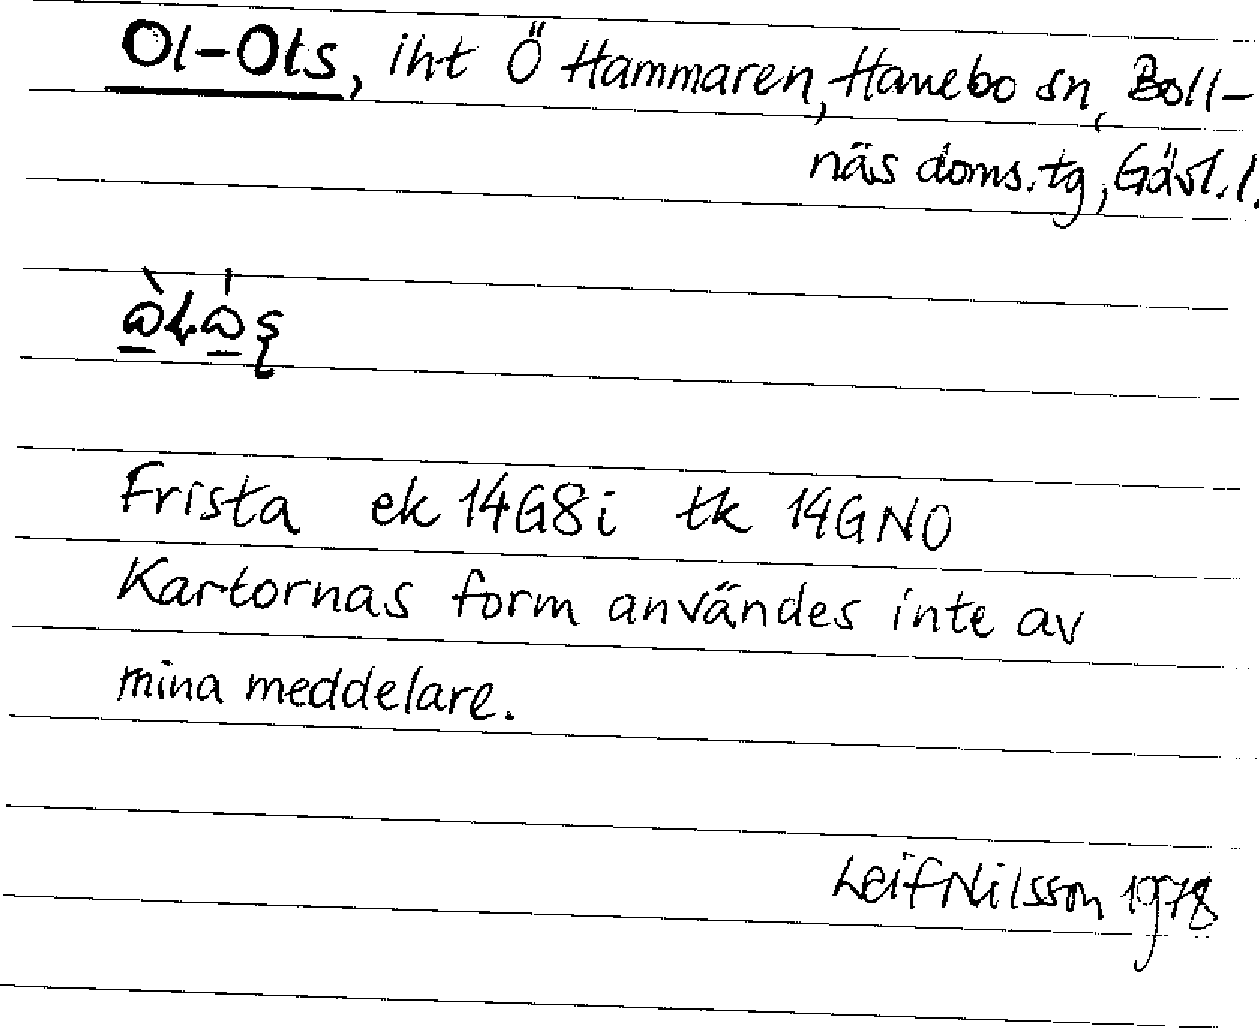 Ol-Ols, iht Ö Hammaren, Hanebo sn, Boll-
näs doms.tg, Gävl.l.
Frista ek 14G8i tk 14GNO
Kartornas form användes inte av
mina meddelare.
Leif Nilsson 1978